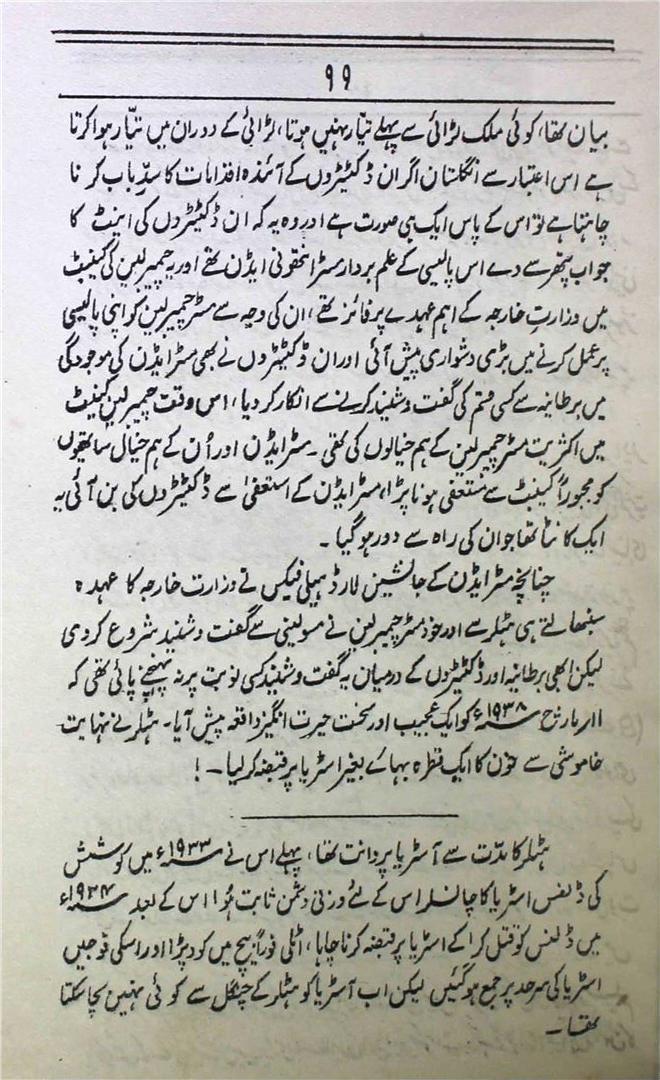 ۹۹
بیان تھا، کوئی ملک لڑائی سے پہلے تیار نہیں ہوتا، لڑائی کے دوران میں تیّار ہوا کرتا
ہے اس اعتبار سے انگلستان اگر ان ڈکٹیٹروں کے آئندہ اقدامات کا سدِّباب کرنا
چاہتا ہے تو اس کے پاس ایک ہی صورت ہے اور وہ یہ کہ ان ڈکٹیٹروں کی اینٹ کا
جواب پتھر سے دے اس پالیسی کے علم بردار مسٹر انتھونی ایڈن تھے اور یہ چیمبرلین کی کیبنٹ
میں وزارتِ خارجہ کے اہم عہدے پر فائز تھے، ان کی وجہ سے مسٹر چیمبرلین کو اپنی پالیسی
پر عمل کرنے میں بڑی دشواری پیش آئی اور ان ڈکٹیٹروں نے بھی مسٹر ایڈن کی موجودگی
میں برطانیہ سے کسی قسم کی گفت و شنید کرنے سے انکار کر دیا، اس وقت چیمبرلین کیبنٹ
میں اکثریت مسٹر چیمبرلین کے ہم خیالوں کی تھی۔ مسٹر ایڈن اور اُن کے ہم خیال ساتھیوں
کو مجبوراً کیبنٹ سے مستعفی ہونا پڑا، مسٹر ایڈن کے استعفیٰ سے ڈکٹیٹروں کی بن آئی یہ
ایک کانٹا تھا جو ان کی راہ سے دور ہو گیا۔
چنانچہ مسٹر ایڈن کے جانشین لارڈ ہیلی فیکس نے وزارت خارجہ کا عہدہ
سنبھالتے ہی ہٹلر سے اور خود مسٹر چیمبرلین نے مسولینی سے گفت و شنید شروع کر دی
لیکن ابھی برطانیہ اور ڈکٹیٹروں کے درمیان یہ گفت و شنید کسی نوبت پر نہ پہنچنے پائی تھی کہ
۱۱ر مارچ ۱۹۳۸ء کو ایک عجیب اور سخت حیرت انگیز واقعہ پیش آیا۔ ہٹلر نے نہایت
خاموشی سے خون کا ایک قطرہ بہائے بغیر اسٹریا پر قبضہ کر لیا۔!
ہٹلر کا مدّت سے آسٹریا پر دانت تھا، پہلے اس نے ۱۹۳۳ء میں کوشش
کی ڈلفس اسٹریا کا چانسلر اس کے لئے وزنی دشمن ثابت ہُوا اس کے بعد ۱۹۳۴ء
میں ڈلفس کو قتل کرا کے اسٹریا پر قبضہ کرنا چاہا، اٹلی فوراً بیچ میں کود پڑا اور اسکی فوجیں
اسٹریا کی سرحد پر جمع ہو گئیں لیکن اب آسٹریا کو ہٹلر کے چنگل سے کوئی نہیں بچا سکتا
تھا۔